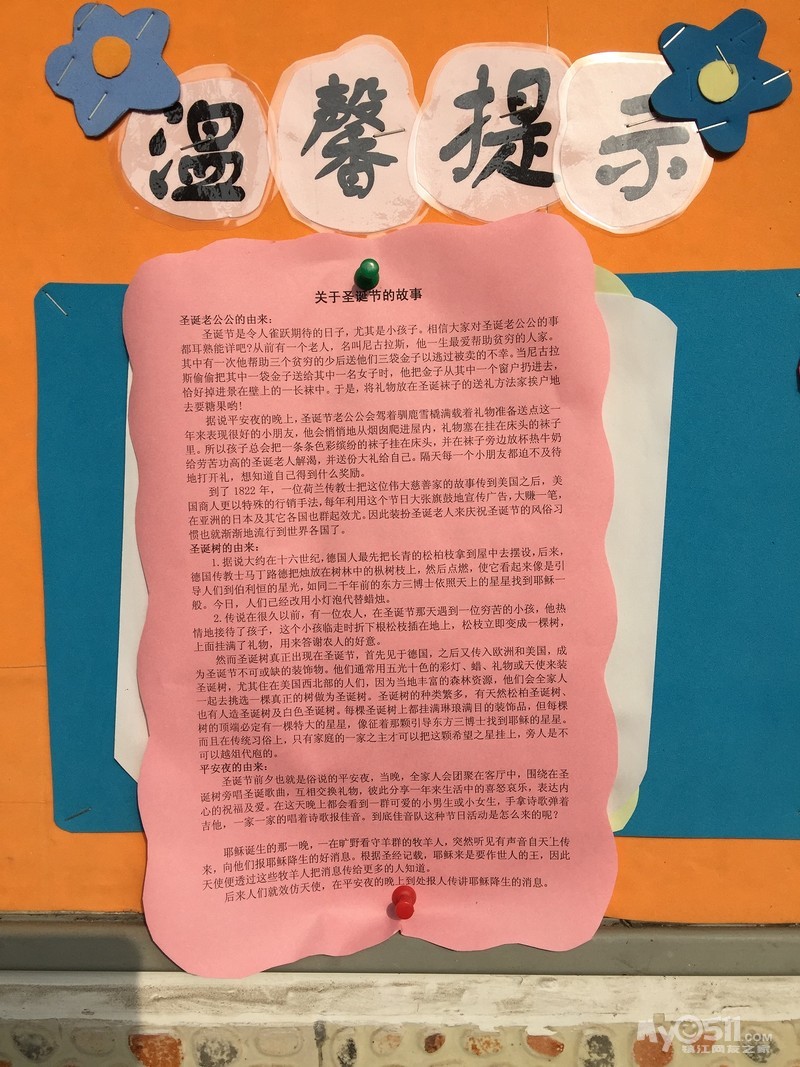 温馨提示
关于圣诞节的故事
圣诞老公公的由来：
圣诞节是令人雀跃期待的日子，尤其是小孩子。相信大家对圣诞老公公的事
都耳熟能详吧?从前有一个老人，名叫尼古拉斯，他一生最爱帮助贫穷的人家。
其中有一次他帮助三个贫穷的少后送他们三袋金子以逃过被卖的不幸。当尼古拉
斯偷偷把其中一袋金子送给其中一名女子时，他把金子从其中一个窗户扔进去，
恰好掉进景在壁上的一长袜中。于是，将礼物放在圣诞袜子的送礼方法家挨户地
去要糖果哟!
据说平安夜的晚上，圣诞节老公公会驾着驯鹿雪橇满载着礼物准备送点这一
年来表现很好的小朋友，他会悄悄地从烟囱爬进屋内，礼物塞在挂在床头的袜子
里。所以孩子总会把一条条色彩缤纷的袜子挂在床头，并在袜子旁边放杯热牛奶
给劳苦功高的圣诞老人解渴，并送份大礼给自己。隔天每一个小朋友都迫不及待
地打开礼，想知道自己得到什么奖励。
到了 1822 年，一位荷兰传教士把这位伟大慈善家的故事传到美国之后，美
国商人更以特殊的行销手法，每年利用这个节日大张旗鼓地宣传广告，大赚一笔，
在亚洲的日本及其它各国也群起效尤。因此装扮圣诞老人来庆祝圣诞节的风俗习
惯也就渐渐地流行到世界各国了。
圣诞树的由来：
1.据说大约在十六世纪，德国人最先把长青的松柏枝拿到屋中去摆设，后来，
德国传教士马丁路德把烛放在树林中的枞树枝上，然后点燃，使它看起来像是引
导人们到伯利恒的星光，如同二千年前的东方三博士依照天上的星星找到耶稣一
般。今日，人们已经改用小灯泡代替蜡烛。
2.传说在很久以前，有一位农人，在圣诞节那天遇到一位穷苦的小孩，他热
情地接待了孩子，这个小孩临走时折下根松枝插在地上，松枝立即变成一棵树，
上面挂满了礼物，用来答谢农人的好意。
然而圣诞树真正出现在圣诞节，首先见于德国，之后又传入欧洲和美国，成
为圣诞节不可或缺的装饰物。他们通常用五光十色的彩灯、蜡、礼物或天使来装
圣诞树，尤其住在美国西北部的人们，因为当地丰富的森林资源，他们会全家人
一起去挑选一棵真正的树做为圣诞树。圣诞树的种类繁多，有天然松柏圣诞树、
也有人造圣诞树及白色圣诞树。每棵圣诞树上都挂满琳琅满目的装饰品，但每棵
树的顶端必定有一棵特大的星星，像征着那颗引导东方三博士找到耶稣的星星。
而且在传统习俗上，只有家庭的一家之主才可以把这颗希望之星挂上，旁人是不
可以越俎代庖的。
平安夜的由来：
圣诞节前夕也就是俗说的平安夜，当晚，全家人会团聚在客厅中，围绕在圣
诞树旁唱圣诞歌曲，互相交换礼物，彼此分享一年来生活中的喜怒哀乐，表达内
心的祝福及爱。在这天晚上都会看到一群可爱的小男生或小女生，手拿诗歌弹着
吉他，一家一家的唱着诗歌报佳音。到底佳音队这种节日活动是怎么来的呢?
耶稣诞生的那一晚，一在旷野看守羊群的牧羊人，突然听见有声音自天上传
来，向他们报耶稣降生的好消息。根据圣经记载，耶稣来是要作世人的王，因此
天使便透过这些牧羊人把消息传给更多的人知道。
后来人们就效仿天使，在平安夜的晚上到处报人传讲耶稣降生的消息。
My0511.COM
镇江网友之家